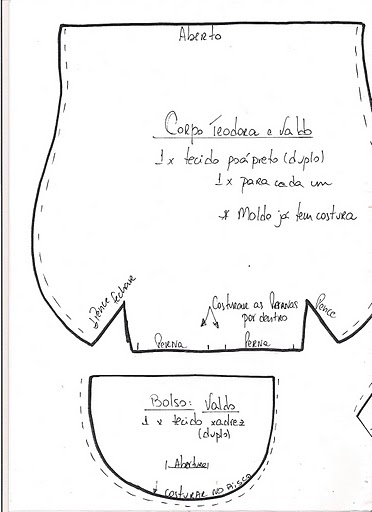 Aberto
Corpo Teodora e Valdo
1 x tecido poá preto (duplo)
1 x para cada um
* Molde já tem costura
Pence fechar
Costurar as Pernas
por dentro
Pence
Perna
Perna
Bolso: Valdo
1 x tecido xadrez
(duplo)
Abertura
* costurar no Risco